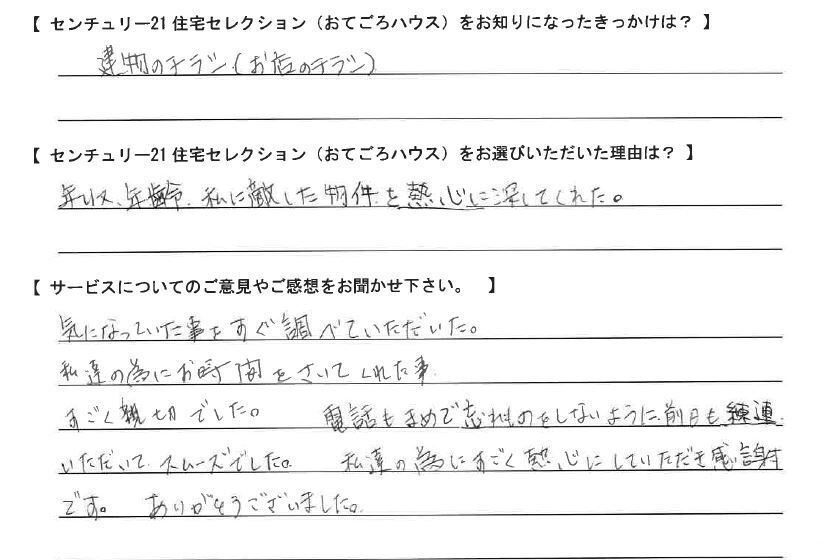 【 センチュリー21 住宅セレクション（おてごろハウス）をお知りになったきっかけは？ 】
建物のチラシ（お店のチラシ）
【 センチュリー21 住宅セレクション（おてごろハウス）をお選びいただいた理由は？ 】
年収、年齢、私に敵した物件を熱心に深してくれた。
【 サービスについてのご意見やご感想をお聞かせ下さい。 】
気になっていた事をすぐ調べていただいた。
私達の為にお時間をさいてくれた事
すごく親切でした。 電話もまめで忘れものをしないように前日も練連
いただいて スムーズでした。 私達の為にすごく熱心にしていただき感謝
です。 ありがとうございました。